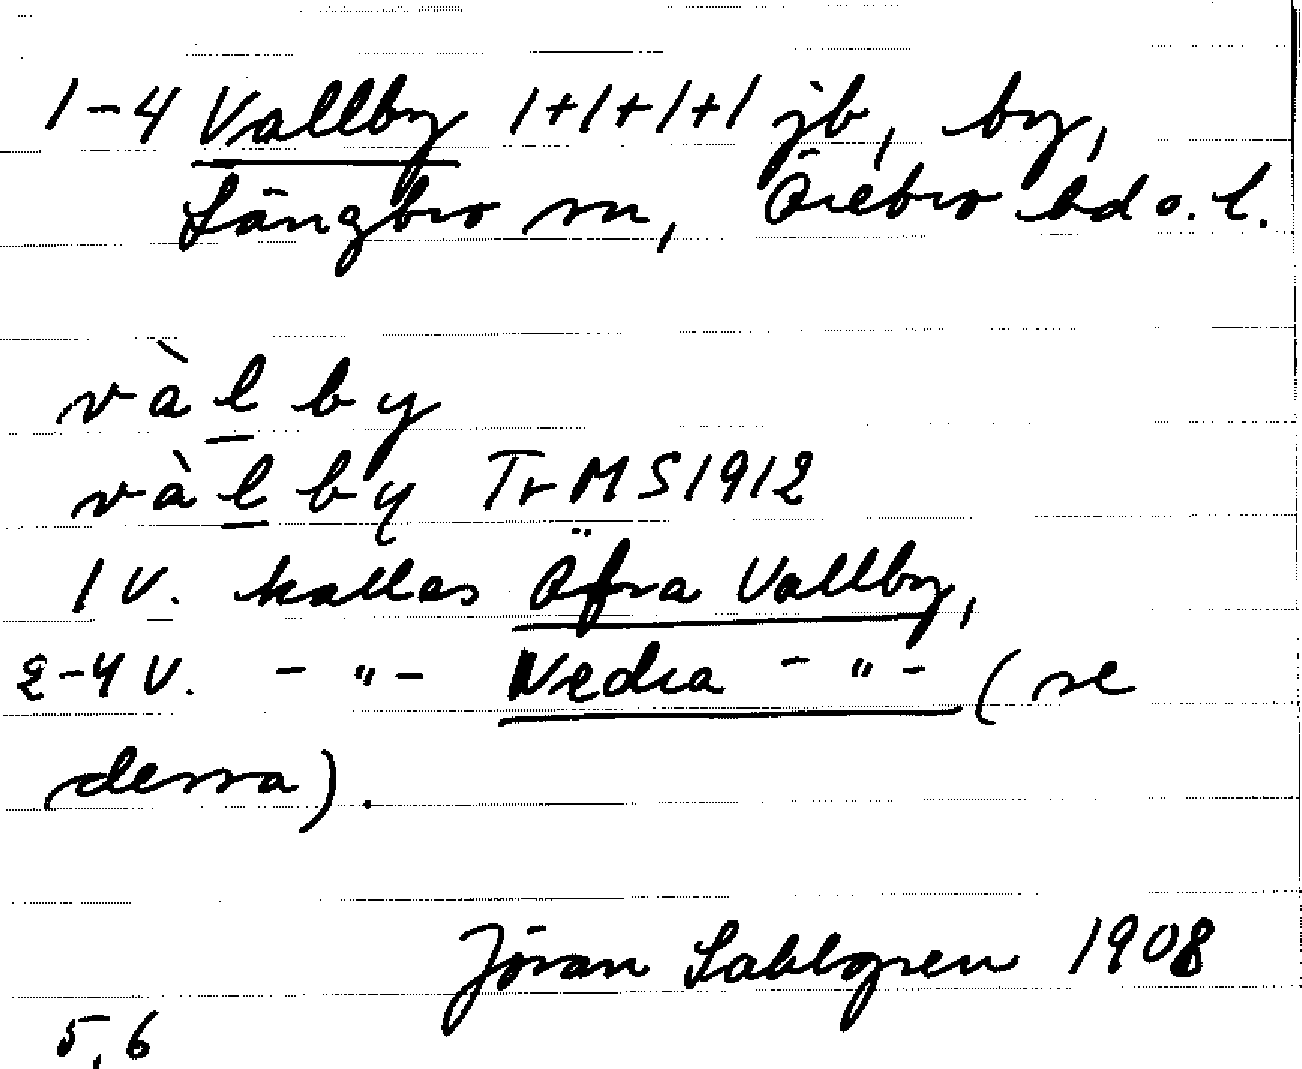 1-4 Vallby 1+1+1+1 jb, by,
Längbro sn, Örebro hd o. l.
vàlby
vàlby Tr MS 1912
1 V. kallas Öfra Vallby,
2-4 V. - " - Nedra - " - (se
dessa).
Jöran Sahlgren 1908
5,6